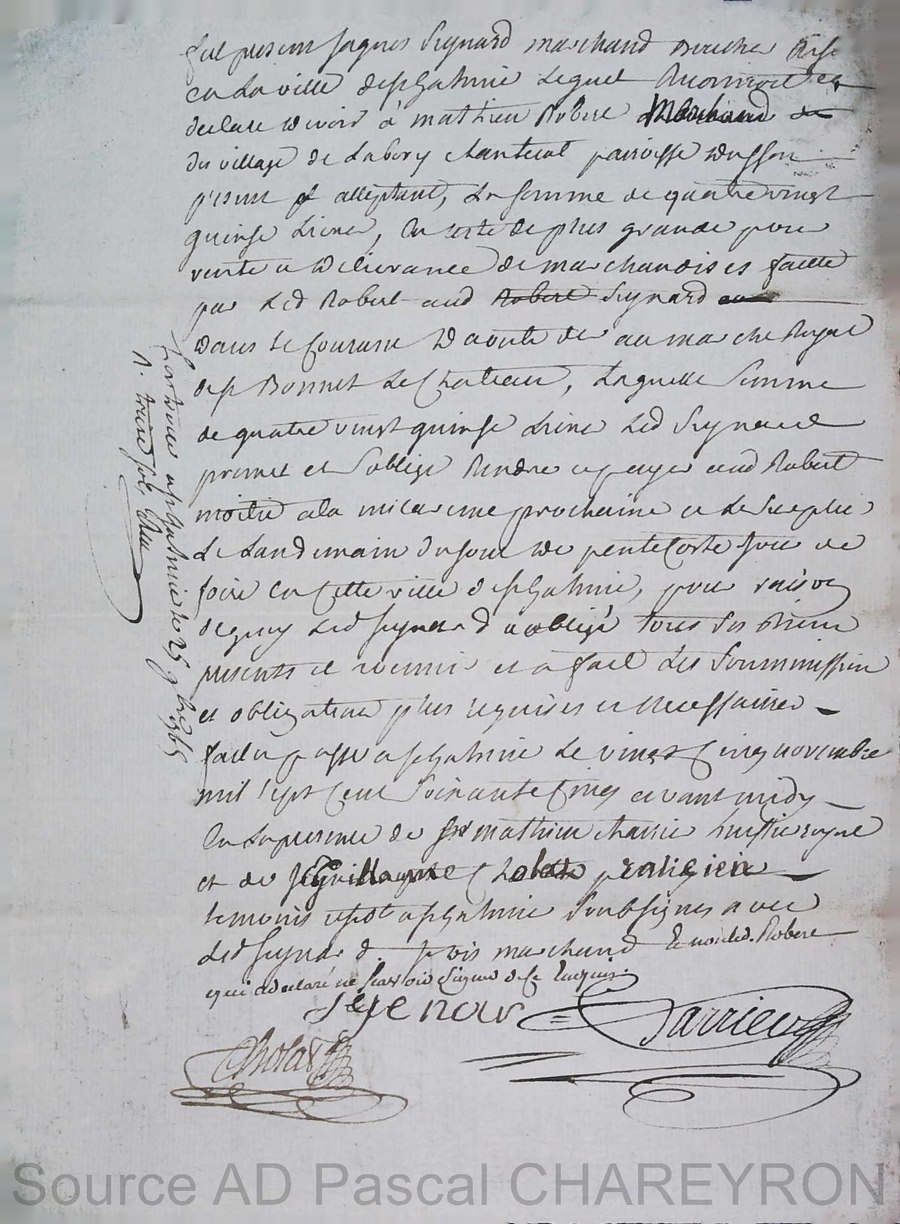 fut present Jaques Seynard marchand Boucher
en La ville de st Galmier Lequel
declare devoir à mathieu Robert marchand
du village de Labory chanteral parroisse dusson
p'esent et alleptant, La somme de quatre vingt
quinse Livres, En reste de plus grande pour
vente et delivrance de marchandises faitte
par Led Robert aud Robert Seynard
dans Le Courant au marche
de st Bonnet Le Chateau, Laquelle Somme
de quatre vingt quinse Livres Led Seynard
promet et soblige Rendre a payer aud Robert
moitié ala micaresme prochaine et Le
Le Landemain du jour de pentecoste jour de
foire en Cette ville de st Galmier, pour raison
dequoy Led Seynard a obligé tous ses biens
presents et avenir et a fait Les Soummission
et obligations plus requises et necessaires
fait a passe a st Galmier Le vingt Cinq novembre
mil sept Cent Soixante Cinq avant midy
En La presence de sr mathieu huissier royal
et de Guillaume Cholat praticien
temoins a st Galmier Soubsignes avec
Led Seynard marchand Et non led. Robert
qui a declaré ne scavoir signer de Ce Enquis
Seyenar
Darrieu
Cholat
a st Galmier le 25 9bre 1765
R. treize sols
Source AD Pascal CHAREYRON